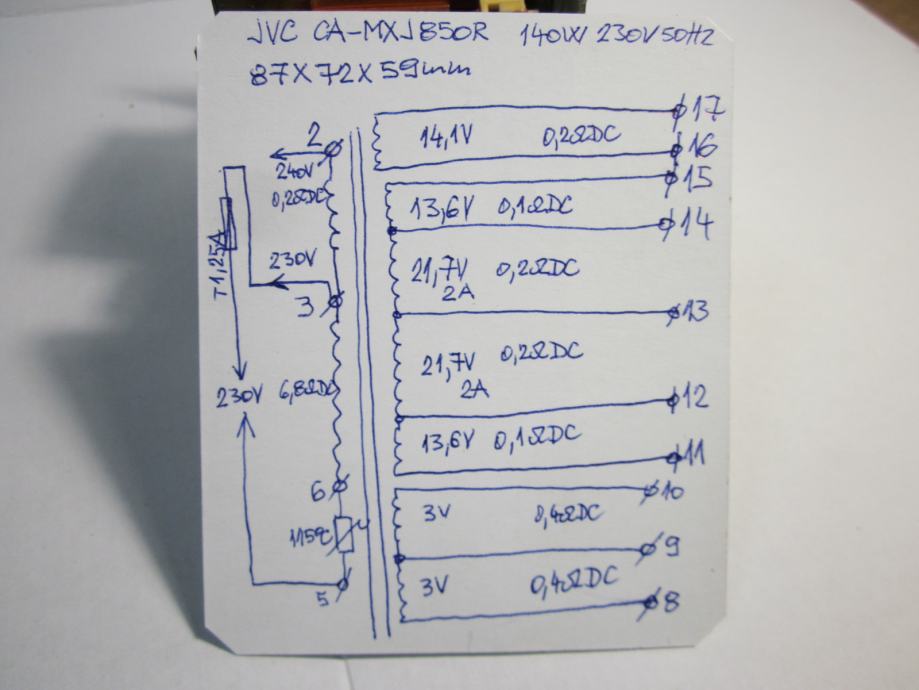 JVC CA-MXJ850R 140W 230V 50Hz
87X72X59mm
17
14,1V 0,2ΩDC
16
2
15
240V
0,2ΩDC
13,6V 0,1ΩDC
14
T1,25A
230V
21,7V 0,2ΩDC
2A
3
13
21,7V 0,2ΩDC
2A
230V 6,8ΩDC
12
13,6V 0,1ΩDC
11
6
10
3V 0,4ΩDC
115°C
9
3V 0,4ΩDC
5
8